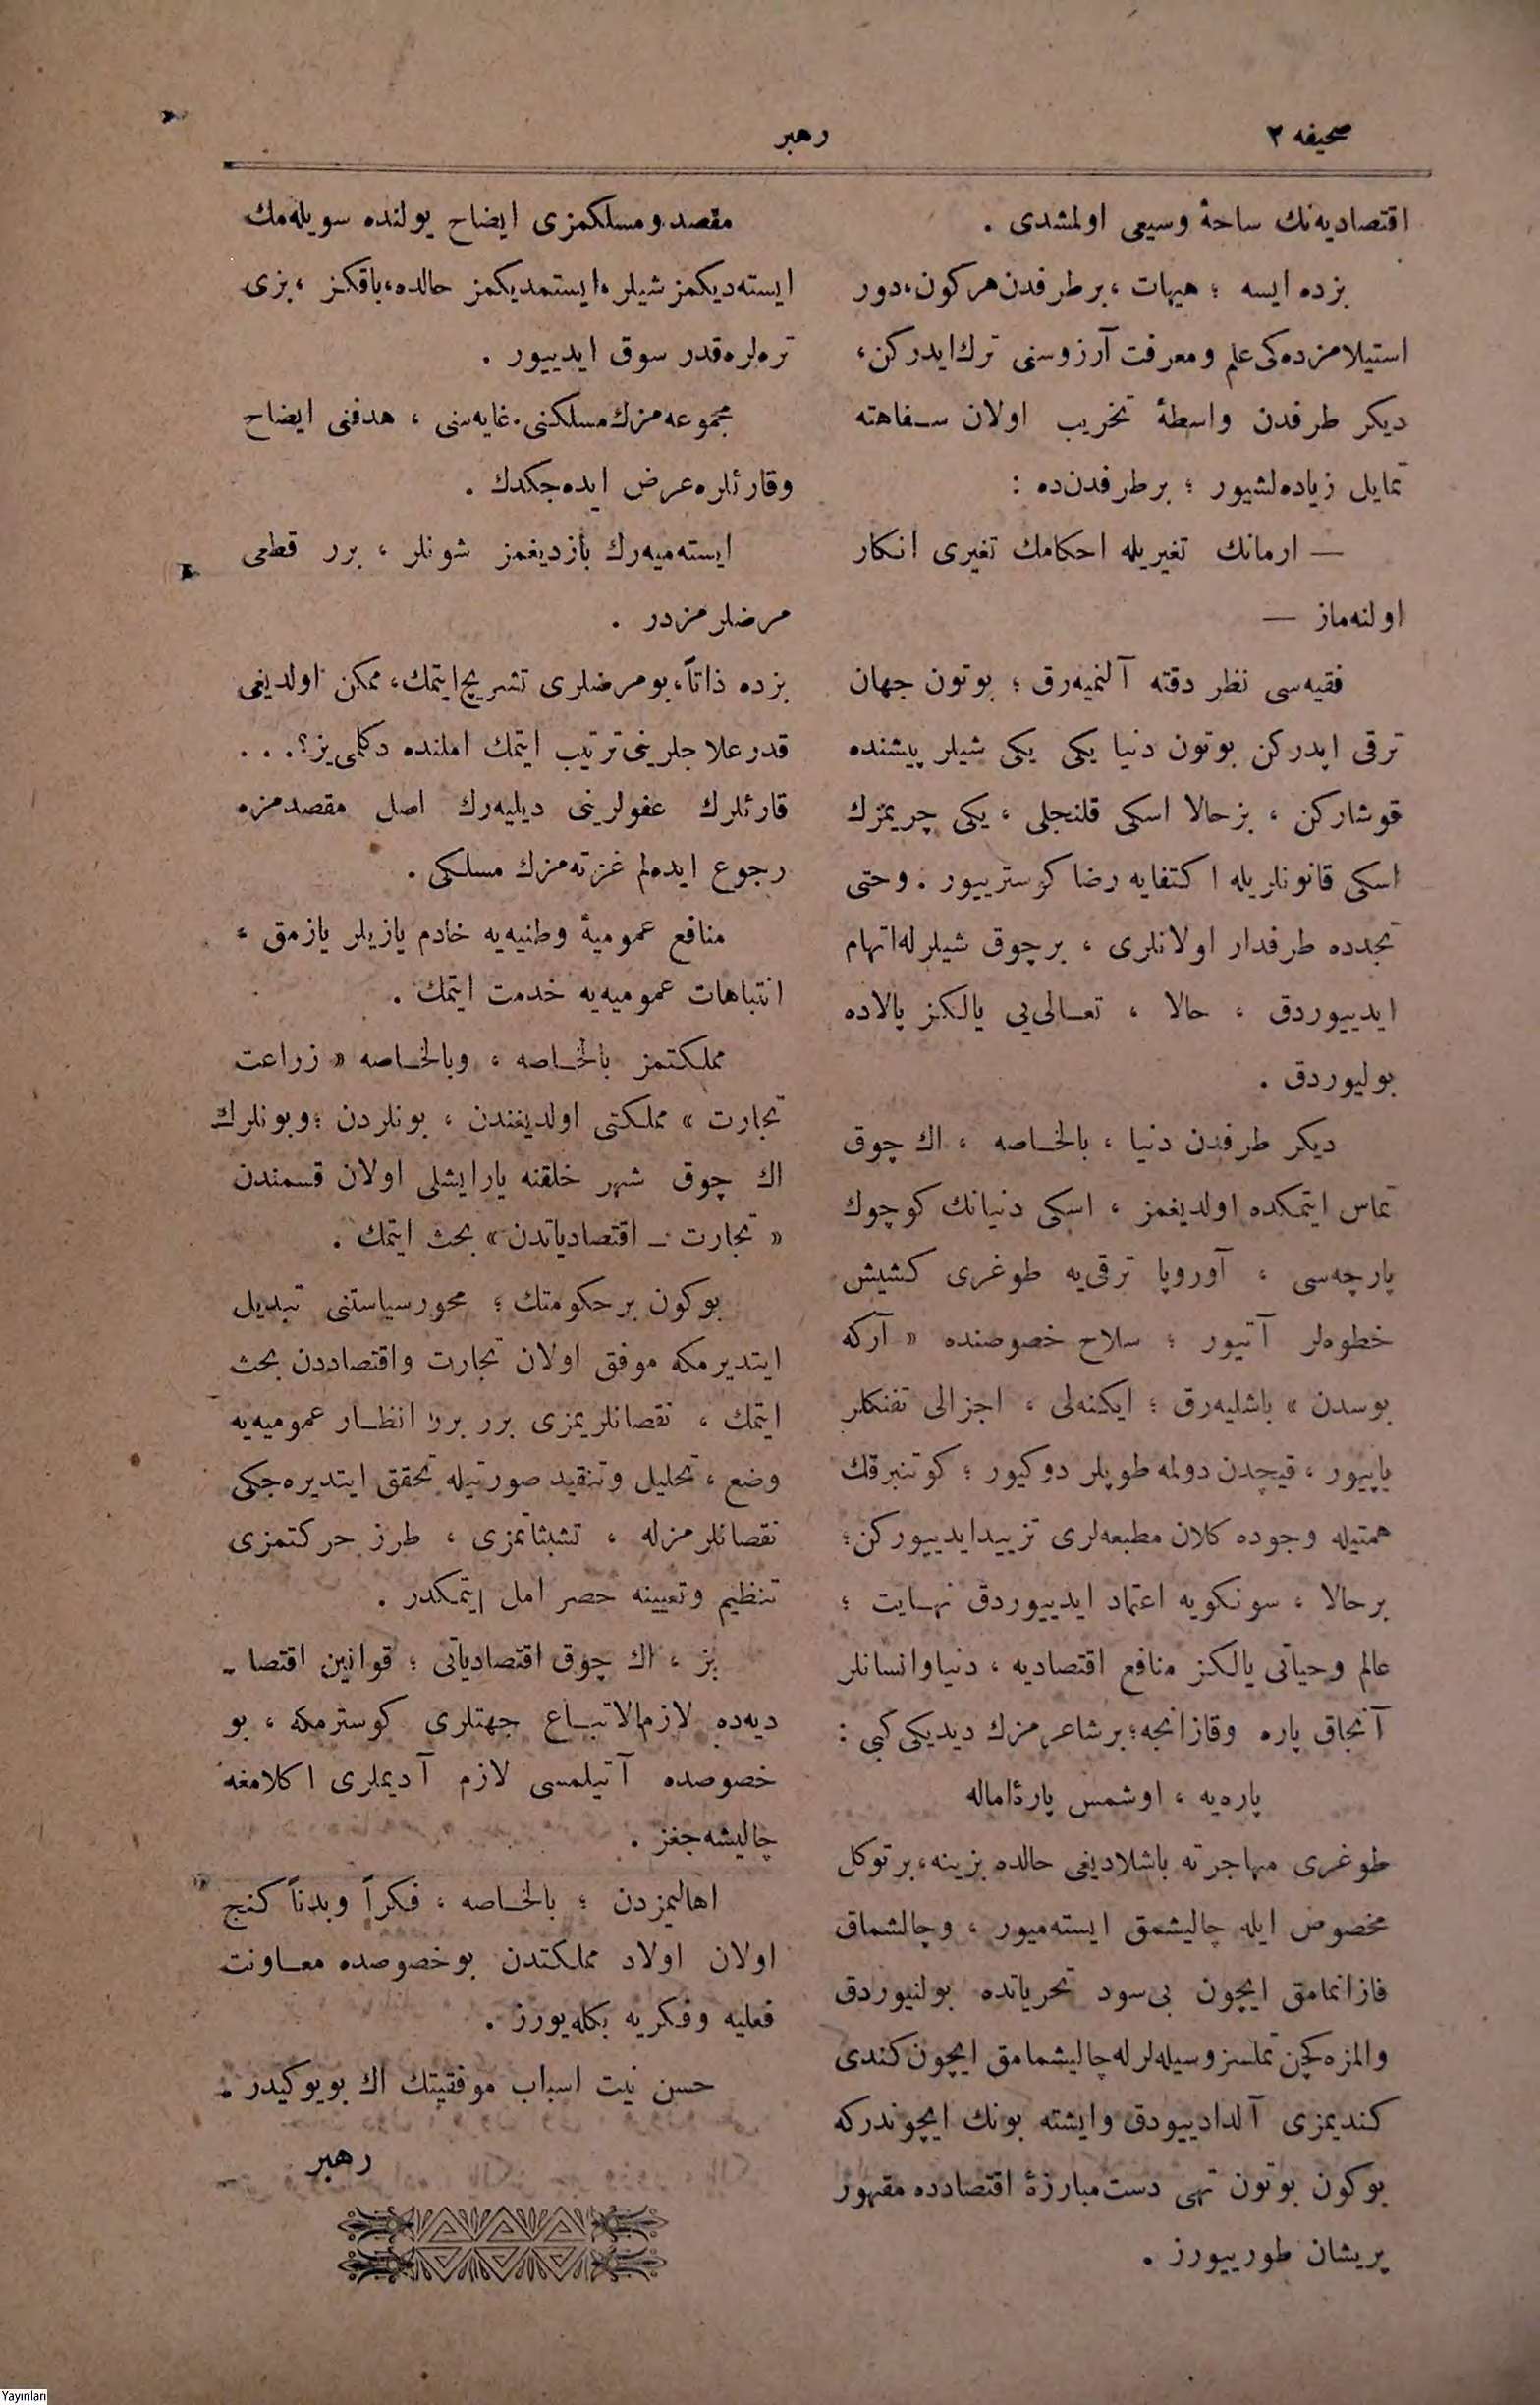 صحیفه ٢
رهبر
اقتصادیه‌نك ساحهٔ وسیعی اولمشدی .
بزده ایسه ؛ هیهات ، بر طرفدن هر كون ، دور
استیلامزده‌كی علم و معرفت آرزوسنی ترك ایدركن ،
دیكر طرفدن واسطهٔ تخریب اولان سفاهته
تمایل زیاده‌لشیور ؛ بر طرفدن ده :
— ازمانك تغیریله احكامك تغیری انكار
اولنه‌ماز —
فقیه‌سی نظر دقته آلنمیه‌رق ؛ بوتون جهان
ترقی ایدركن بوتون دنیا یكی یكی شیلر پیشنده
قوشاركن ، بز حالا اسكی قلنجلی ، یكی چریمزك
اسكی قانونلریله اكتفایه رضا كوسترییور . وحتی
تجدده طرفدار اولانلری ، بر چوق شیلرله اتهام
ایدییوردق ، حالا ، تعالی‌یی یالكز پالاده
بولیوردق .
دیكر طرفدن دنیا ، بالخاصه ، اك چوق
تماس ایتمكده اولدیغمز ، اسكی دنیانك كوچوك
پارچه‌سی ، آوروپا ترقی‌یه طوغری كشیش
خطوه‌لر آتیور ؛ سلاح خصوصنده « آركه
بوسدن » باشلیه‌رق ؛ ایكنه‌لی ، اجزالی تفنكلر
یاپیور ، قیچدن دولمه طوپلر دوكیور ؛ كوتنبرقك
همتیله وجوده كلان مطبعه‌لری تزیید ایدییوركن ؛
بز حالا ، سونكویه اعتماد ایدییوردق نهایت ؛
عالم و حیاتی یالكز منافع اقتصادیه ، دنیا و انسانلر
آنجاق پاره وقازانجه ؛ بر شاعرمزك دیدیكی كبی :
پاره‌یه ، اوشمس پارهٔ اماله
طوغری مهاجرته باشلادیغی حالده بز ینه ، بر توكل
مخصوص ایله چالیشمق ایسته‌میور ، وچالشماق
قازانمامق ایچون بی سود تحریاتده بولنیوردق
والمزه كچن تملسز وسیله‌لرله چالیشمامق ایچون كندی
كندیمزی آلدادییودق وایشته بونك ایچوندركه
بوكون بوتون تهی دست مبارزهٔ اقتصادده مقهور
پریشان طورییورز .
مقصد ومسلكمزی ایضاح یولنده سویله‌مك
ایسته‌دیكمز شیلر ، ایستمدیكمز حالده ، باقكز ، بزی
نره‌لره قدر سوق ایدییور .
مجموعه‌مزك مسلكنی ، غایه‌سنی ، هدفنی ایضاح
وقارئلره عرض ایده‌جكدك .
ایسته‌میه‌رك یازدیغمز شونلر ، برر قطعی
مرضلرمزدر .
بزده ذاتاً ، بو مرضلری تشریح ایتمك ، ممكن اولدیغی
قدر علاجلرینی ترتیب ایتمك املنده دكلمی‌یز ؟ . . .
قارئلرك عفولرینی دیلیه‌رك اصل مقصدمزه
رجوع ایده‌لم غزته‌مزك مسلكی .
منافع عمومیهٔ وطنیه‌یه خادم یازیلر یازمق ،
انتباهات عمومیه‌یه خدمت ایتمك .
مملكتمز بالخاصه ، وبالخاصه « زراعت
تجارت » مملكتی اولدیغندن ، بونلردن ؛ وبونلرك
اك چوق شهر خلقنه یارایشلی اولان قسمندن
« تجارت ــ اقتصادیاتدن » بحث ایتمك .
بوكون بر حكومتك ؛ محور سیاستنی تبدیل
ایتدیرمكه موفق اولان تجارت واقتصاددن بحث
ایتمك ، نقصانلریمزی برر برر انظار عمومیه‌یه
وضع ، تحلیل وتنقید صورتیله تحقق ایتدیره‌جكی
نقصانلرمزله ، تشبثاتمزی ، طرز حركتمزی
تنظیم وتعیینه حصر امل ایتمكدر .
بز ، اك چوق اقتصادیاتی ؛ قوانین اقتصا ـ
دیه‌ده لازم الاتباع جهتلری كوسترمكه ، بو
خصوصده آتیلمسی لازم آدیملری اكلامغه
چالیشه‌جغز .
اهالیمزدن ؛ بالخاصه ، فكراً وبدناً كنج
اولان اولاد مملكتدن بو خصوصده معاونت
فعلیه وفكریه بكله‌یورز .
حسن نیت اسباب موفقیتك اك بویوكیدر .
رهبر
Yayınları